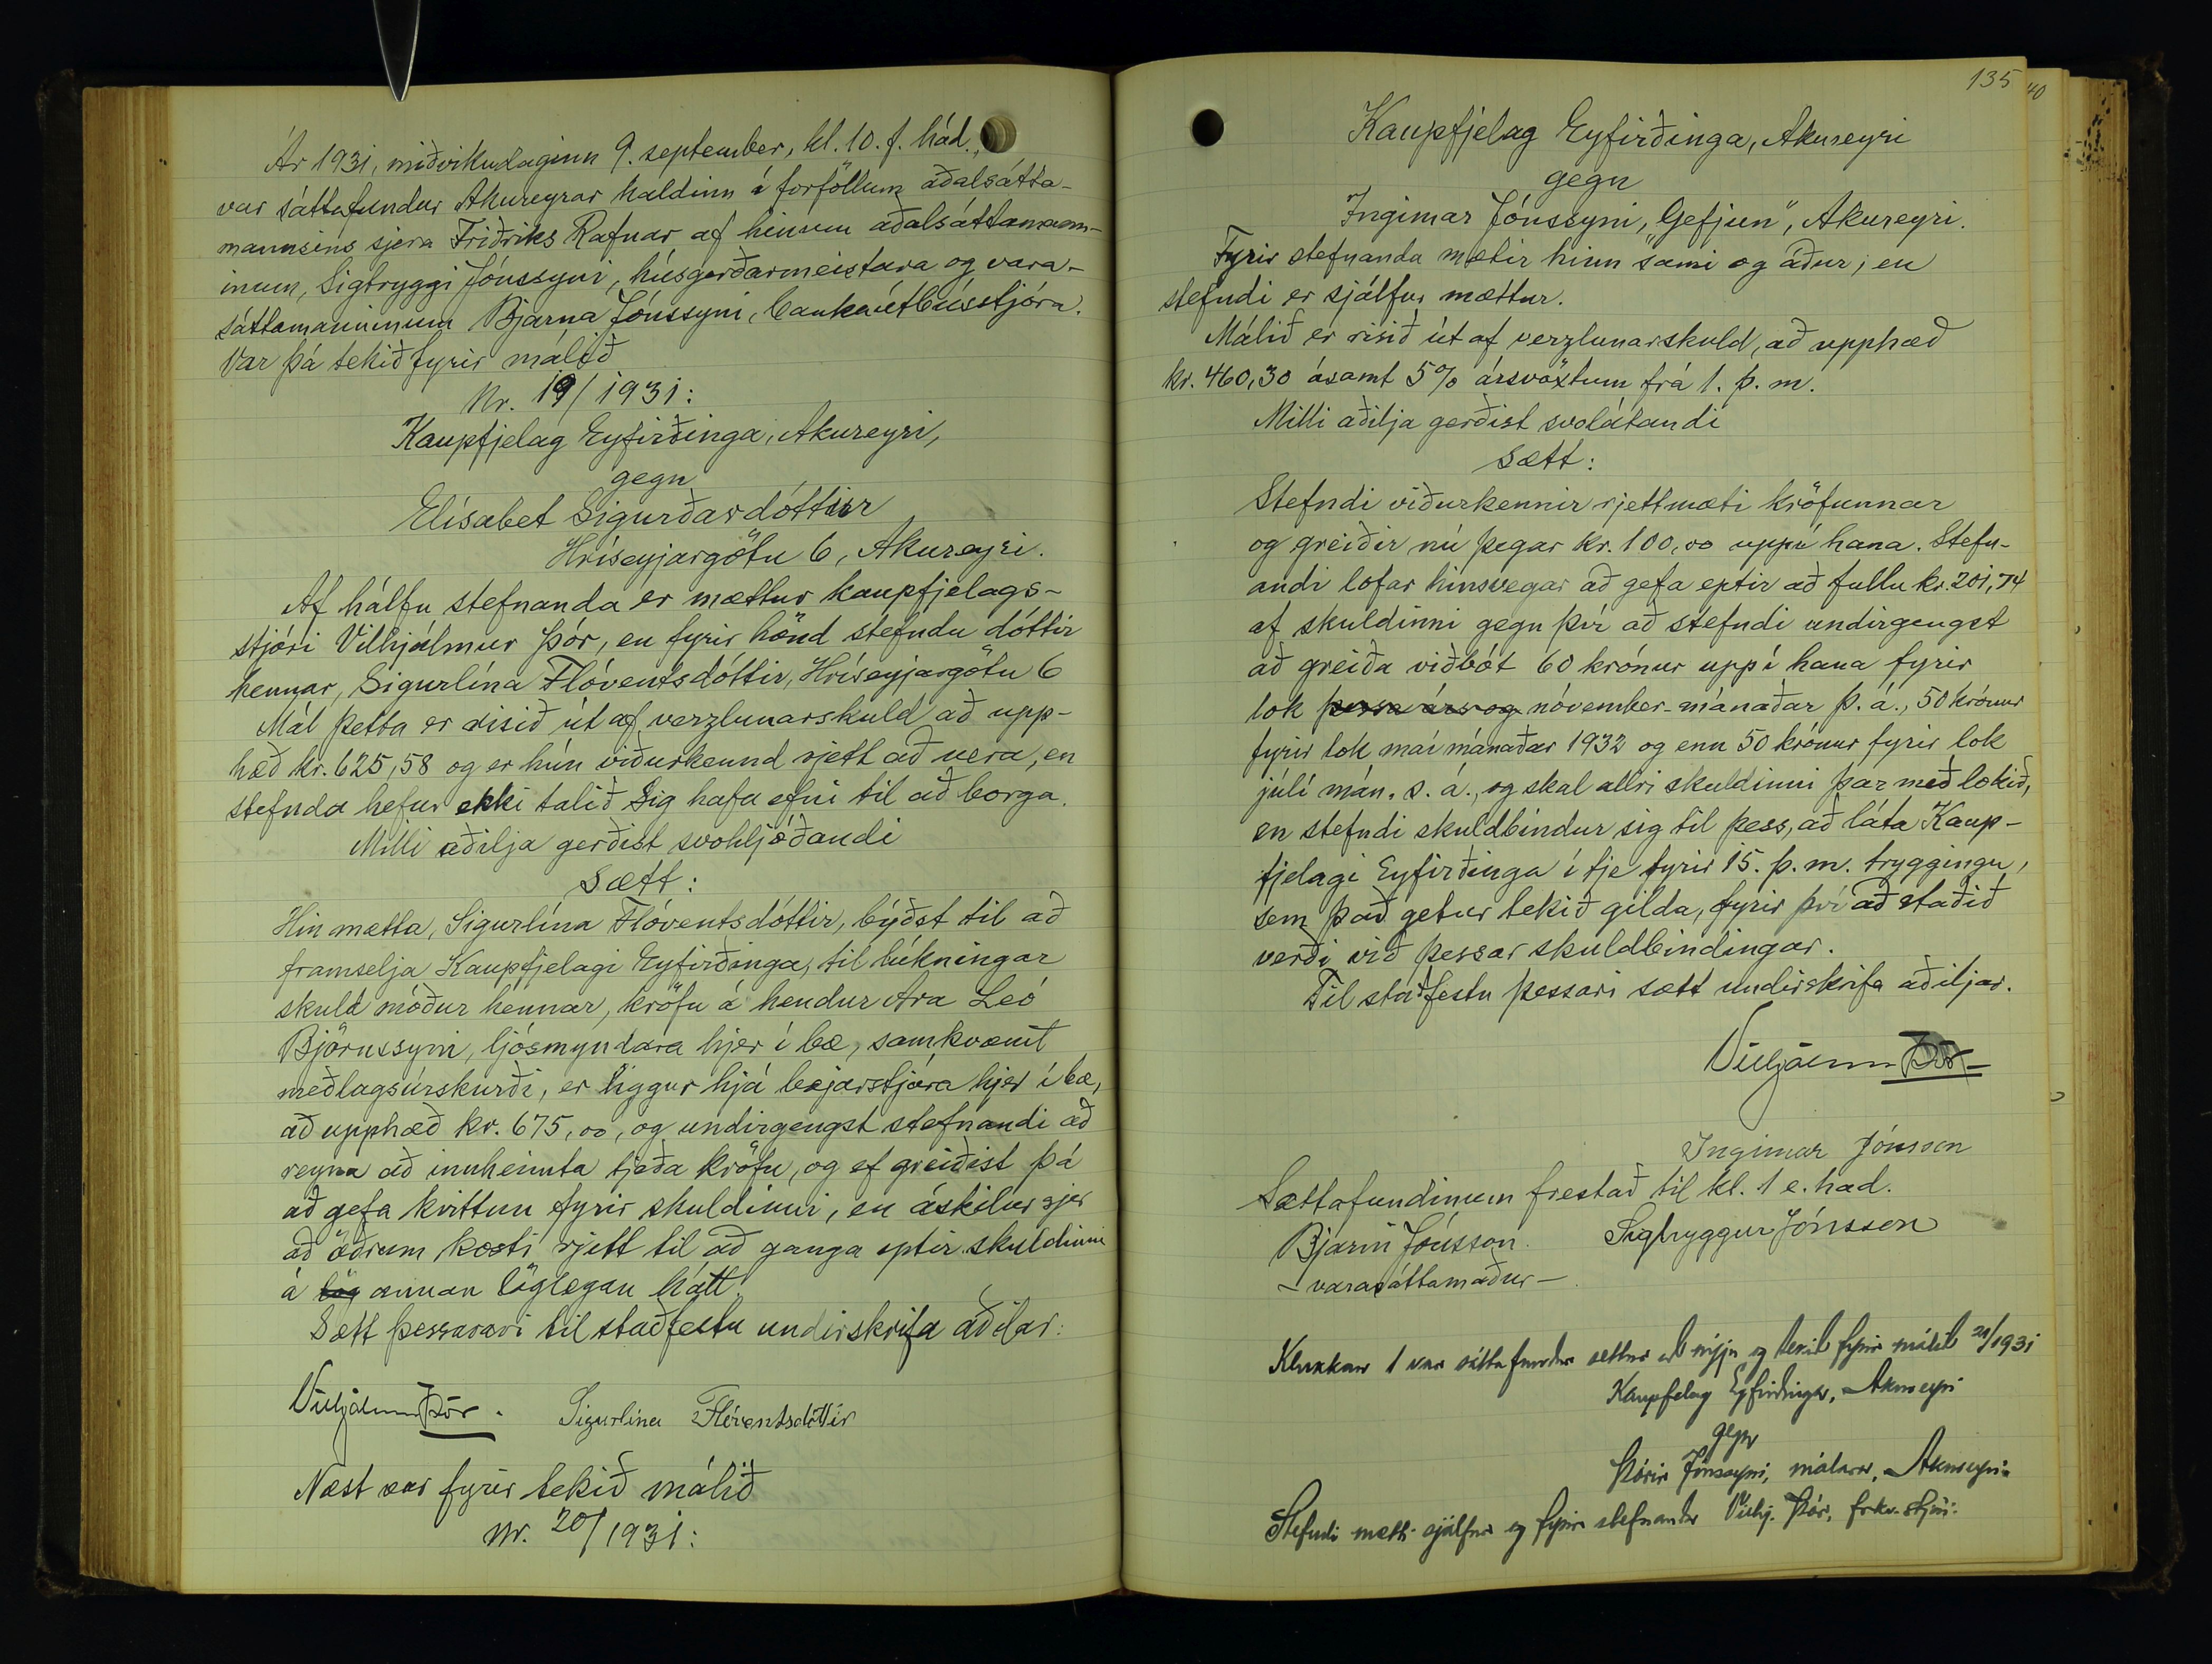 Ár 1931, miðvikudaginn 9. september, kl. 10. f. hád.,
var sáttafundur Akureyrar haldinn í forföllum aðalsátta-
mannsins sjera Friðriks Rafnar af hinum aðalsáttamann-
inum, Sigtryggi Jónssyni, húsgerðarmeistara og vara-
sáttamanninum Bjarna Jónssyni, bankaútbússtjóra.
Var þá tekið fyrir málið
Nr. 19/1931:
Kaupfjelag Eyfirðinga, Akureyri,
gegn
Elísabet Sigurðardóttur
Hríseyjargötu 6, Akureyri.
Af hálfu stefnanda er mættur kaupfjelags-
stjóri Vilhjálmur Þór, en fyrir hönd stefndu dóttir
hennar, Sigurlína Flóventsdóttir, Hríseyjargötu 6
Mál þetta er risið út af verzlunarskuld að upp-
hæð kr. 625,58 og er hún viðurkennd rjett að vera, en
stefnda hefur ekki talið sig hafa efni til að borga.
Milli aðilja gerðist svohljóðandi
Sætt:
Hin mætta, Sigurlína Flóventsdóttir, býðst til að
framselja Kaupfjelagi Eyfirðinga, til lúkningar
skuld móður hennar, kröfu á hendur Ara Leó
Björnssyni, ljósmyndara hjer í bæ, samkvæmt
meðlagsúrskurði, er liggur hjá bæjarstjóra hjer í bæ,
að upphæð kr. 675,00, og undirgengst stefnandi að
reyna að innheimta tjeða kröfu, og ef greiðist þá
að gefa kvittun fyrir skuldinni, en áskilur sjer
að öðrum kosti rjett til að ganga eptir skuldinni
á lög annan löglegan hátt.
Sætt þessarari til staðfestu undirskrifa aðilar:
Vilhjálmur Þór. Sigurlína Flóventsdóttir
Næst var fyrir tekið málið
Nr. 20/1931:
135
40
Kaupfjelag Eyfirðinga, Akureyri
gegn
Ingimar Jónssyni, "Gefjun", Akureyri.
Fyrir stefnanda mætir hinn sami og áður, en
stefndi er sjálfur mættur.
Málið er risið út af verzlunarskuld, að upphæð
kr. 460,30 ásamt 5% ársvöxtum frá 1. þ. m.
Milli aðilja gerðist svolátandi
Sætt:
Stefndi viðurkennir rjettmæti kröfunnar
og greiðir nú þegar kr. 100,00 uppí hana. Stefn-
andi lofar hinsvegar að gefa eptir að fullu kr. 201,74
af skuldinni gegn því að stefndi undirgengst
að greiða viðbót 60 krónur uppí hana fyrir
lok þessa árs og nóvember-mánaðar þ. á., 50 krónur
fyrir lok maí mánaðar 1932 og enn 50 krónur fyrir lok
júlí mán. s. á., og skal allri skuldinni þar með lokið,
en stefndi skuldbindur sig til þess, að láta Kaup-
fjelagi Eyfirðinga í tje fyrir 15. þ. m. tryggingu,
sem það getur tekið gilda, fyrir því að staðið
verði við þessar skuldbindingar.
Til staðfestu þessari sætt undirskrifa aðiljar.
Vilhjálmur Þór
Ingimar Jónsson
Sættafundinum frestað til kl. 1 e. had.
Bjarni Jónsson. Sigtryggur Jónsson
- varasáttamaður -
Klukkan 1 var sáttafundur settur að nýju og tekið fyrir málið 21/1931
Kaupfelag Eyfirðinga, Akureyri
gegn
Þórir Jónssyni, málara, Akureyri.
Stefndi mætti sjálfur og fyrir stefnanda Vilhj. Þór, frkv. stjóri.